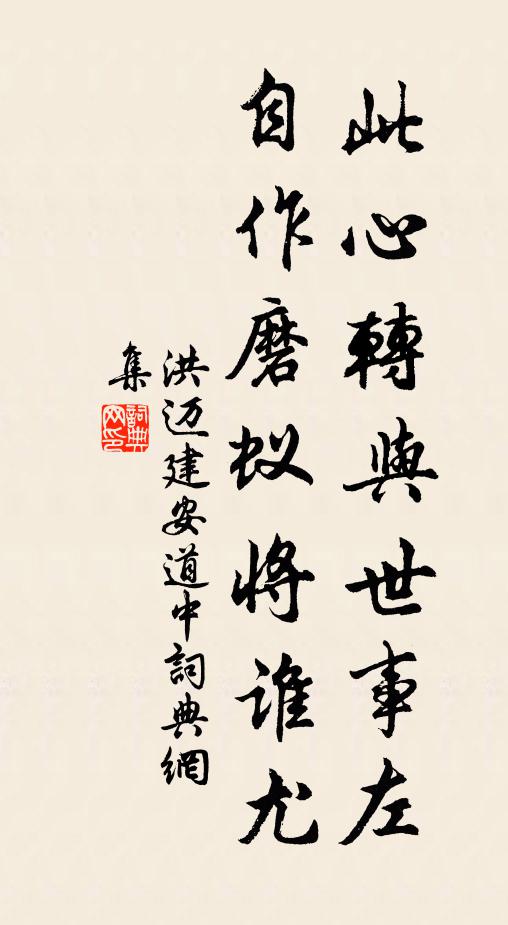 此心轉與世事左
自作磨蚁將谁尤
洪迈建安道中詞典網
集
詞典
网印